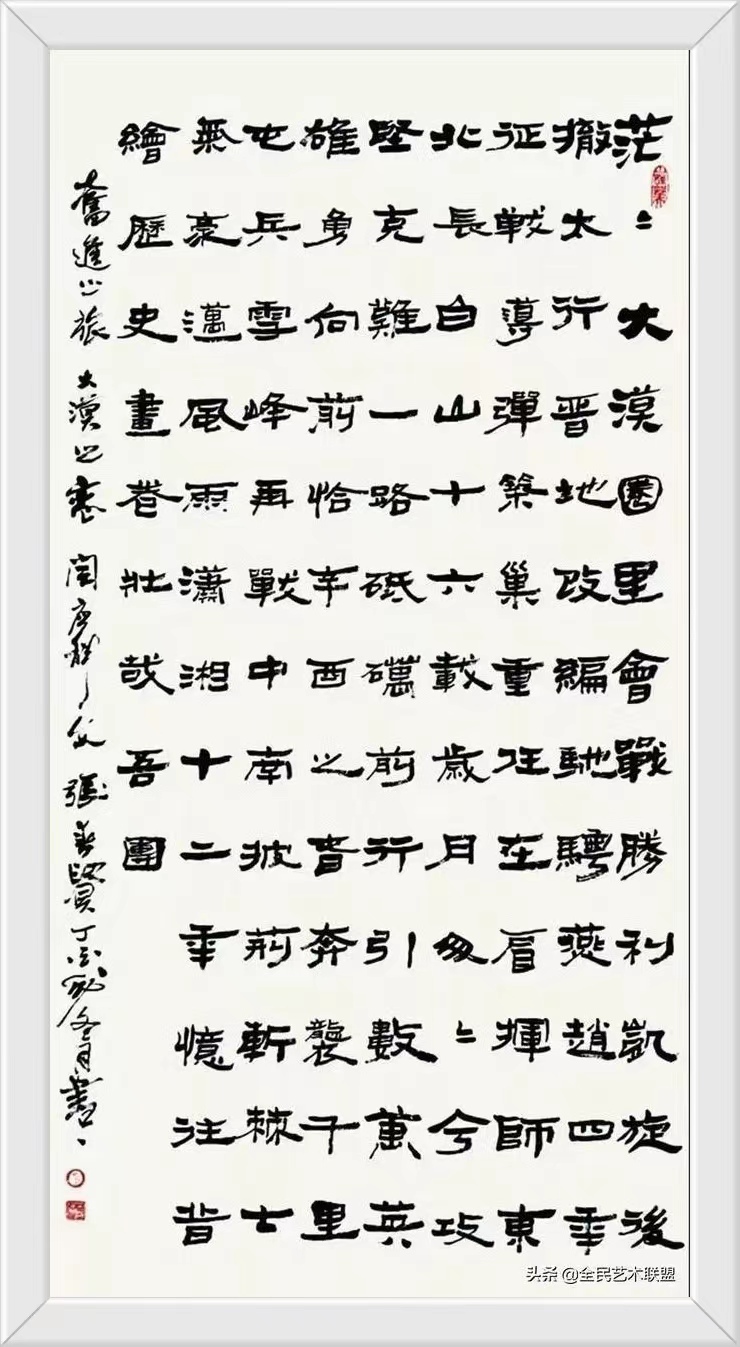 茫〻大漠圈里會戰勝利凱旋後
撤太行晉地改編馳騁燕趙四年
征戰導彈築巢重任在肩揮師東
北長白山十六載歲月匆〻今攻
堅克難一路砥礪前行引數萬英
雄勇向前恰辛酉之春奔襲千里
屯兵雪峰再戰中南披荊斬棘士
氣豪邁風雨瀟湘十二年憶往昔
繪歷史畫卷壯哉吾團
奮進之旅 大漠之 之父 張 賢 丁酉 冬月書
头条 @全民艺术联盟